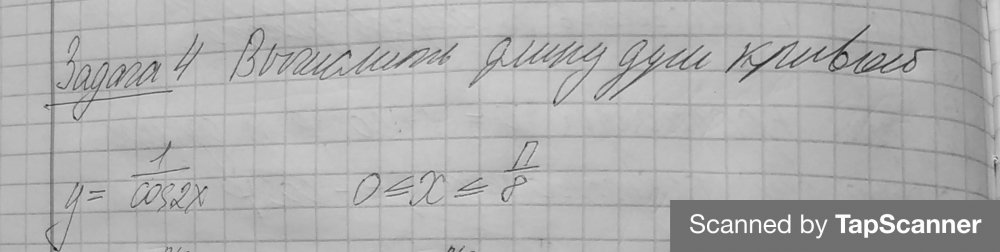 Задача 4 Вычислить длину дуги кривой
y = 1/cos2x 0 ≤ x ≤ П/8
Scanned by TapScanner